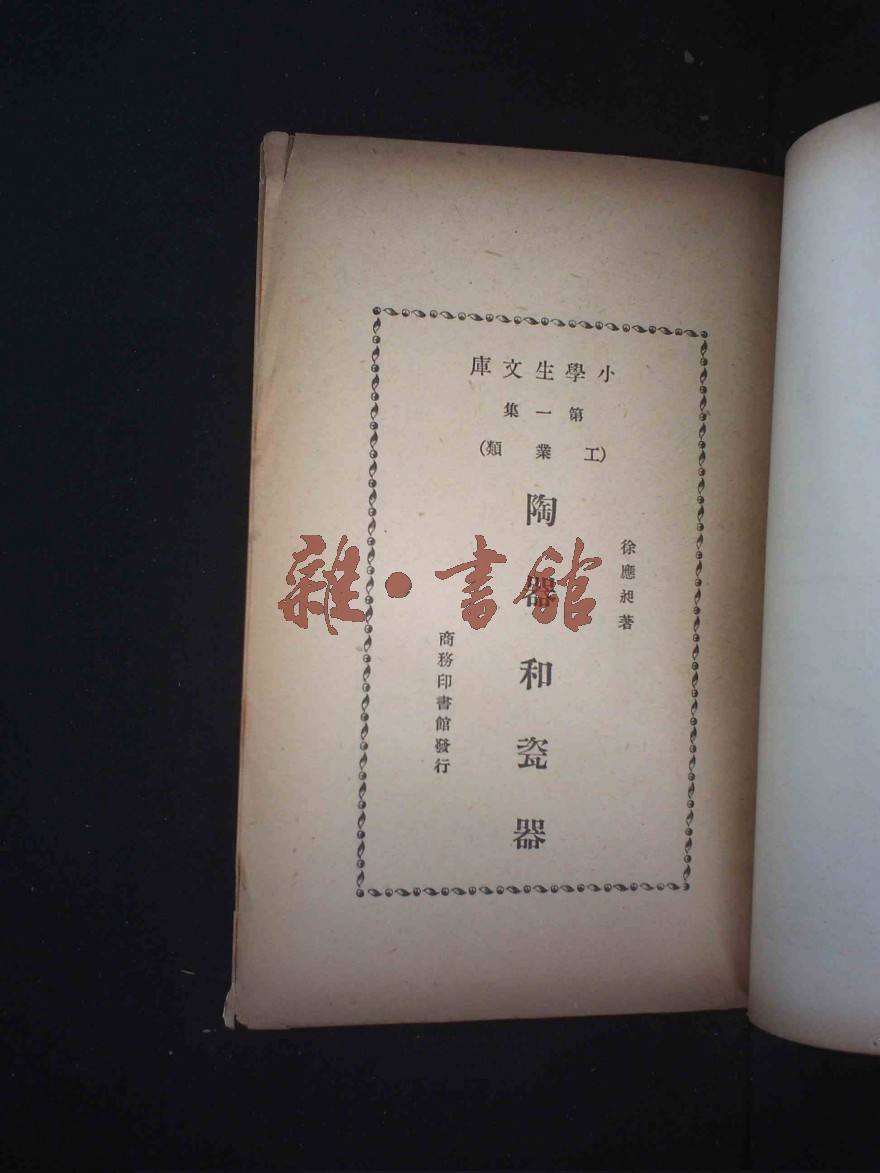 小學生文庫
第一集
(工業類)
徐應昶著
陶器和瓷器
商務印書館發行
雜·書館